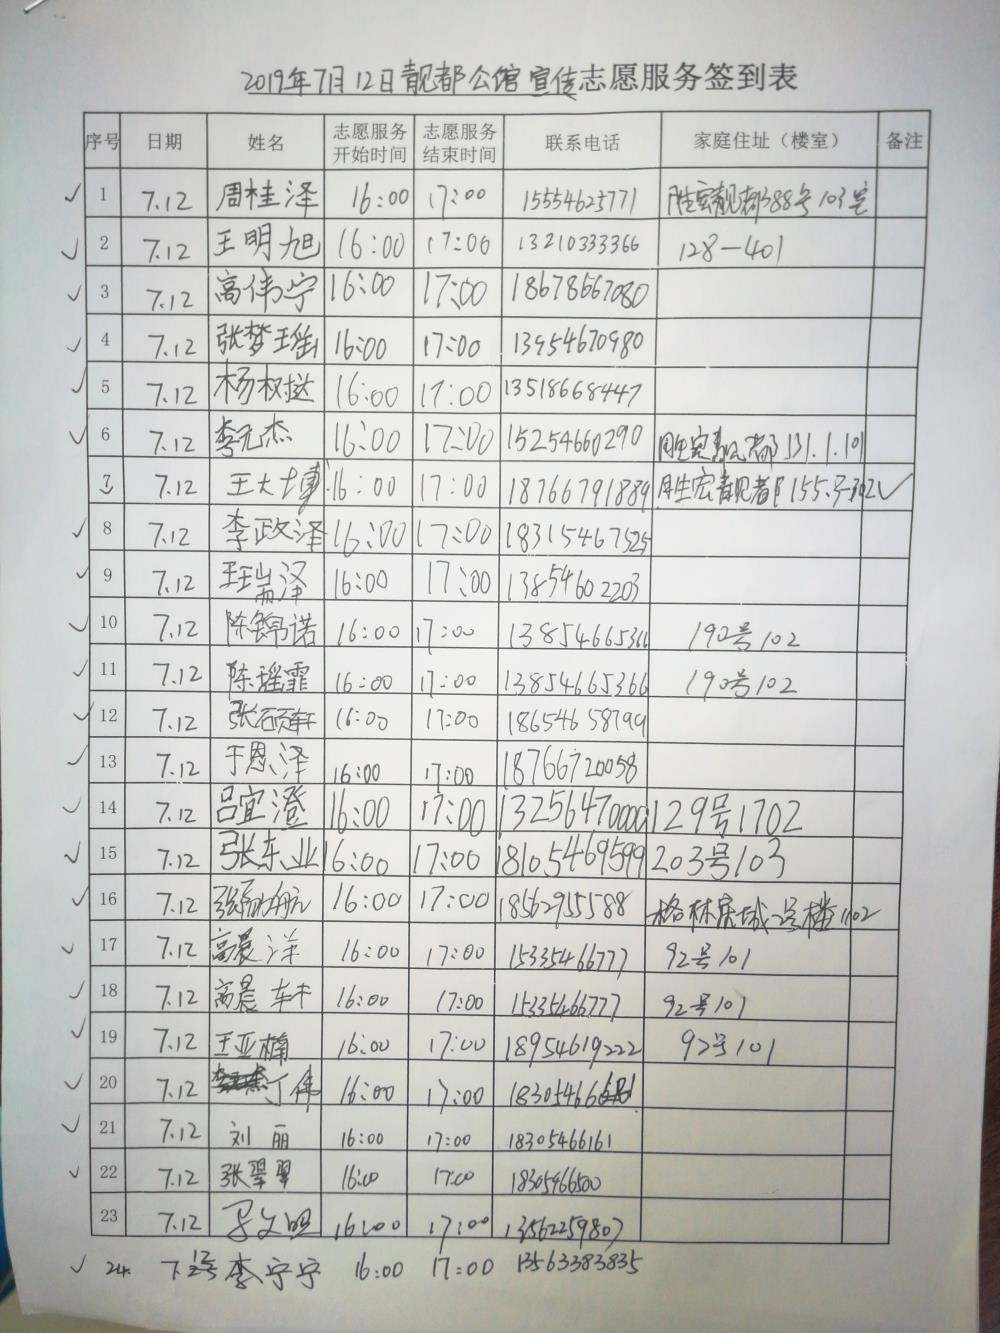 2019年7月12日靓都公馆宣传志愿服务签到表
序号 日期 姓名 志愿服务开始时间 志愿服务结束时间 联系电话 家庭住址（楼室） 备注
1 7.12 周桂泽 16:00 17:00 15554625771 胜宏靓都388号103室
2 7.12 王明旭 16:00 17:00 13210333366 128-401
3 7.12 高伟宁 16:00 17:00 18678667080
4 7.12 张梦瑶 16:00 17:00 13954670980
5 7.12 杨树挞 16:00 17:00 13518668447
6 7.12 李元杰 16:00 17:00 15254660290 胜宏靓都131.1.101
7 7.12 王大博 16:00 17:00 18766791889 胜宏靓都155号302
8 7.12 李政泽 16:00 17:00 18315467525
9 7.12 王瑞泽 16:00 17:00 13854602203
10 7.12 陈锦诺 16:00 17:00 13854665366 190号102
11 7.12 陈瑶霏 16:00 17:00 13854665366 190号102
12 7.12 张硕轩 16:00 17:00 18654658799
13 7.12 于恩泽 16:00 17:00 18766720058
14 7.12 吕宜澄 16:00 17:00 13256470000 129号1702
15 7.12 张东业 16:00 17:00 18105469599 203号103
16 7.12 张航 16:00 17:00 18562955588 格林星城2号楼1102
17 7.12 高晨洋 16:00 17:00 15335466777 92号101
18 7.12 高晨轩 16:00 17:00 15335466777 92号101
19 7.12 王亚楠 16:00 17:00 18954619222 92号101
20 7.12 丁伟 16:00 17:00 18305466
21 7.12 刘丽 16:00 17:00 18305466161
22 7.12 张翠翠 16:00 17:00 18305466500
23 7.12 16:00 17:00 13562259807
24. 7.12号 李宁宁 16:00 17:00 13563383835